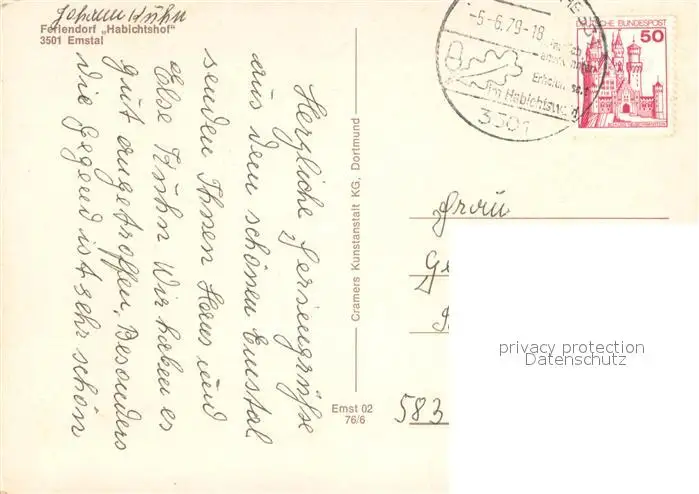 Johann Kühn
Feriendorf „Habichtshof"
3501 Emstal
Herzliche Feriengrüße
aus dem schönen Emstal
senden Ihnen Hans und
Else Kühn Wir haben es
gut angetroffen, Besonders
die Gegend ist sehr schön
Cramers Kunstanstalt KG, Dortmund
Emst 02
76/6
-5-6.79-18
im Habichtswald
3501
DEUTSCHE BUNDESPOST
50
Frau
Ge
583
privacy protection
Datenschutz